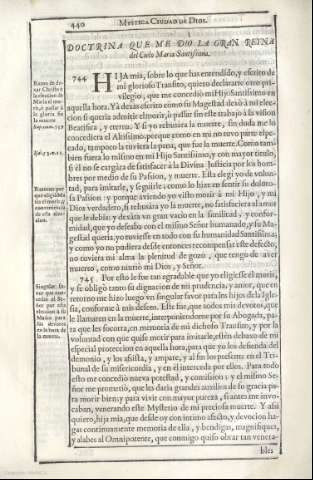 440 MYSTICA CIUDAD DE DIOS.
DOCTRINA QUE ME DIO LA GRAN REINA
del Cielo Maria Santissima.
744 HIJA mia, sobre lo que has entendido, y escrito de
mi glorioso Transito, quiero declararte otro pri-
vilegio, que me concedió mi Hijo Santissimo en
aquella hora. Yà dexas escrito como su Magestad dexó à mi elec-
cion si queria admitir el morir, ò passar sin este trabajo à la vision
Beatifica, y eterna. Y si yo rehusara la muerte, sin duda me lo
concediera el Altissimo, porque como en mi no tuvo parte el pe-
cado, tampoco la tuviera la pena, que fue la muerte. Como tam-
bien fuera lo mismo en mi Hijo Santissimo, y con mayor titulo,
si èl no se cargara de satisfacer à la Divina Justicia por los hom-
bres por medio de su Passion, y muerte. Esta elegí yo de volun-
tad, para imitarle, y seguirle, como lo hize en sentir su doloro-
sa Passion: y porque aviendo yo visto morir à mi Hijo, y mi
Dios verdadero, si rehusara yo la muerte, no satisfaciera al amor
que le debia: y dexara un gran vacio en la similitud, y confor-
midad, que yo deseaba con el mismo Señor humanado, y su Ma-
gestad queria, yo tuviesse en todo con su humanidad Santissima;
y como yo no pudiera desde entonces recompensar este defecto,
no tuviera mi alma la plenitud de gozo, que tengo de aver
muerto, como murió mi Dios, y Señor.
745 Por esto le fue tan agradable que yo eligiesse el morir,
y se obligó tanto su dignacion de mi prudencia, y amor, que en
retorno me hizo luego un singular favor para los hijos de la Igle-
sia, conforme à mis deseos. Este fue, que todos mis devotos, que
le llamaren en la muerte, interponiendome por su Abogada, pa-
ra que les socorra, en memoria de mi dichoso Transito, y por la
voluntad con que quise morir para imitarle, estèn debaxo de mi
especial proteccion en aquella hora, para que yo los defienda del
demonio, y los assista, y ampare, y al fin los presente en el Tri-
bunal de su misericordia, y en èl interceda por ellos. Para todo
esto me concedió nueva potestad, y comission: y el mismo Se-
ñor me prometió, que les daria grandes auxilios de su gracia pa-
ra morir bien; y para vivir con mayor pureza, si antes me invo-
caban, venerando este Mysterio de mi preciosa muerte. Y assi
quiero, hija mia, que desde oy con intimo afecto, y devocion ha-
gas continuamente memoria de ella, y bendigas, magnifiques,
y alabes al Omnipotente, que conmigo quiso obrar tan venera-
bles